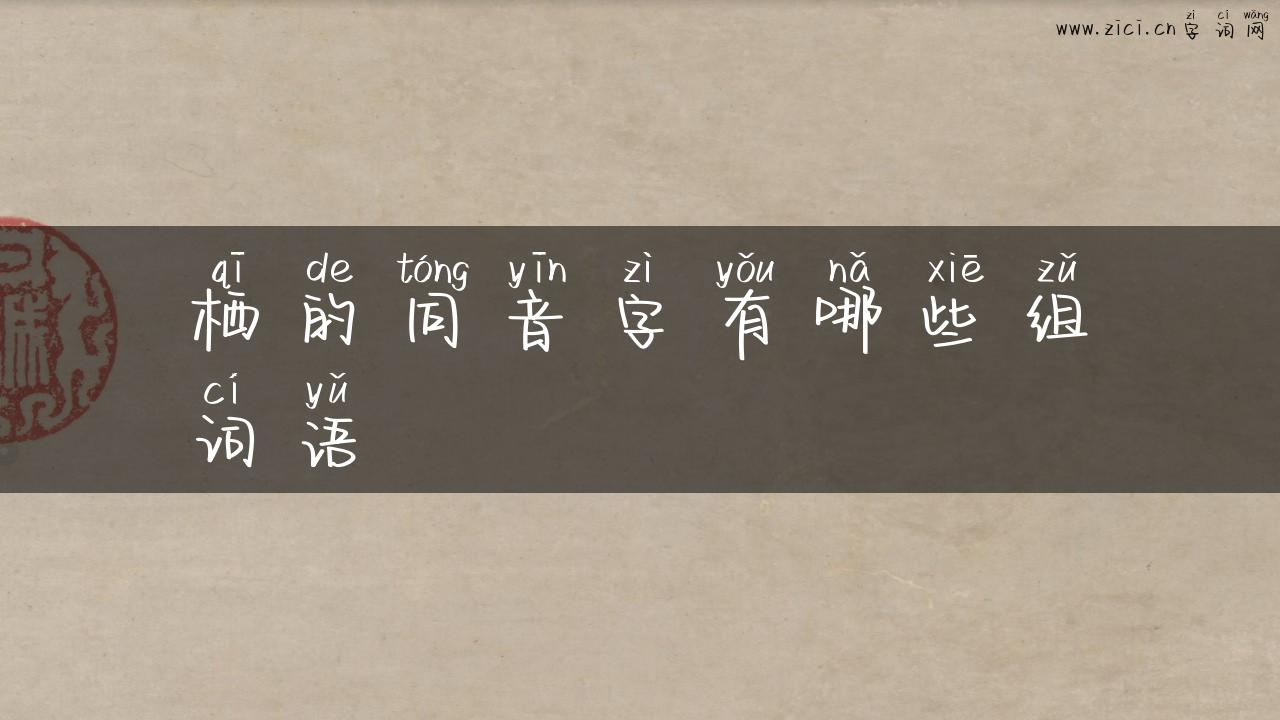 zì cí wǎng
www.zici.cn 字词网
qī de tóng yīn zì yǒu nǎ xiē zǔ
栖的同音字有哪些组
cí yǔ
词语